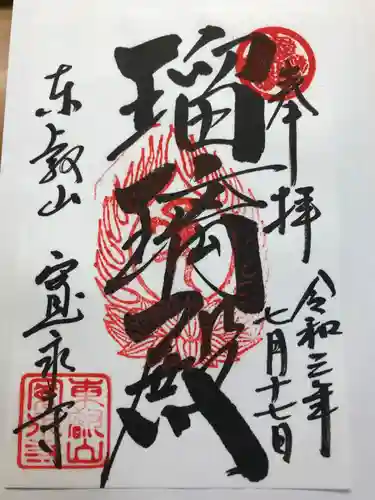 奉拝
令和三年
七月十七日
瑠璃殿
東叡山 寛永寺